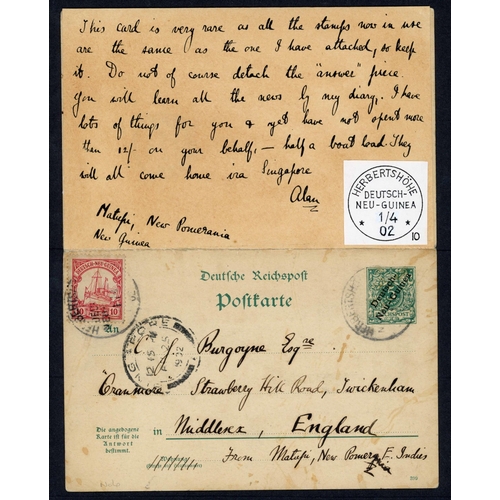 This card is very rare as all the stamps now in use
are the same as the one I have attached, so keep
it. Do not of course detach the "answer" piece.
You will learn all the news by my diary. I have
lots of things for you & yet have not spent more
then 12/- on your behalf, - half a boat load. They
will all come home via Singapore
Alan
Matupi, New Pomerania
New Guinea
HERBERTSHÖHE
DEUTSCH-
NEU-GUINEA
1/4
* 02 *
10
DEUTSCH-NEU-GUINEA
10 10
Deutsche Reichspost
Postkarte
Deutsch-
Neu-Guinea
An
SINGAPORE
1902
Burgoyne Esqre
"Cranmore" Strawberry Hill Road, Twickenham
in Middlex, England
From Matupi, New Pomerania, E. Indies
Die angebogene
Karte ist für die
Antwort
bestimmt.